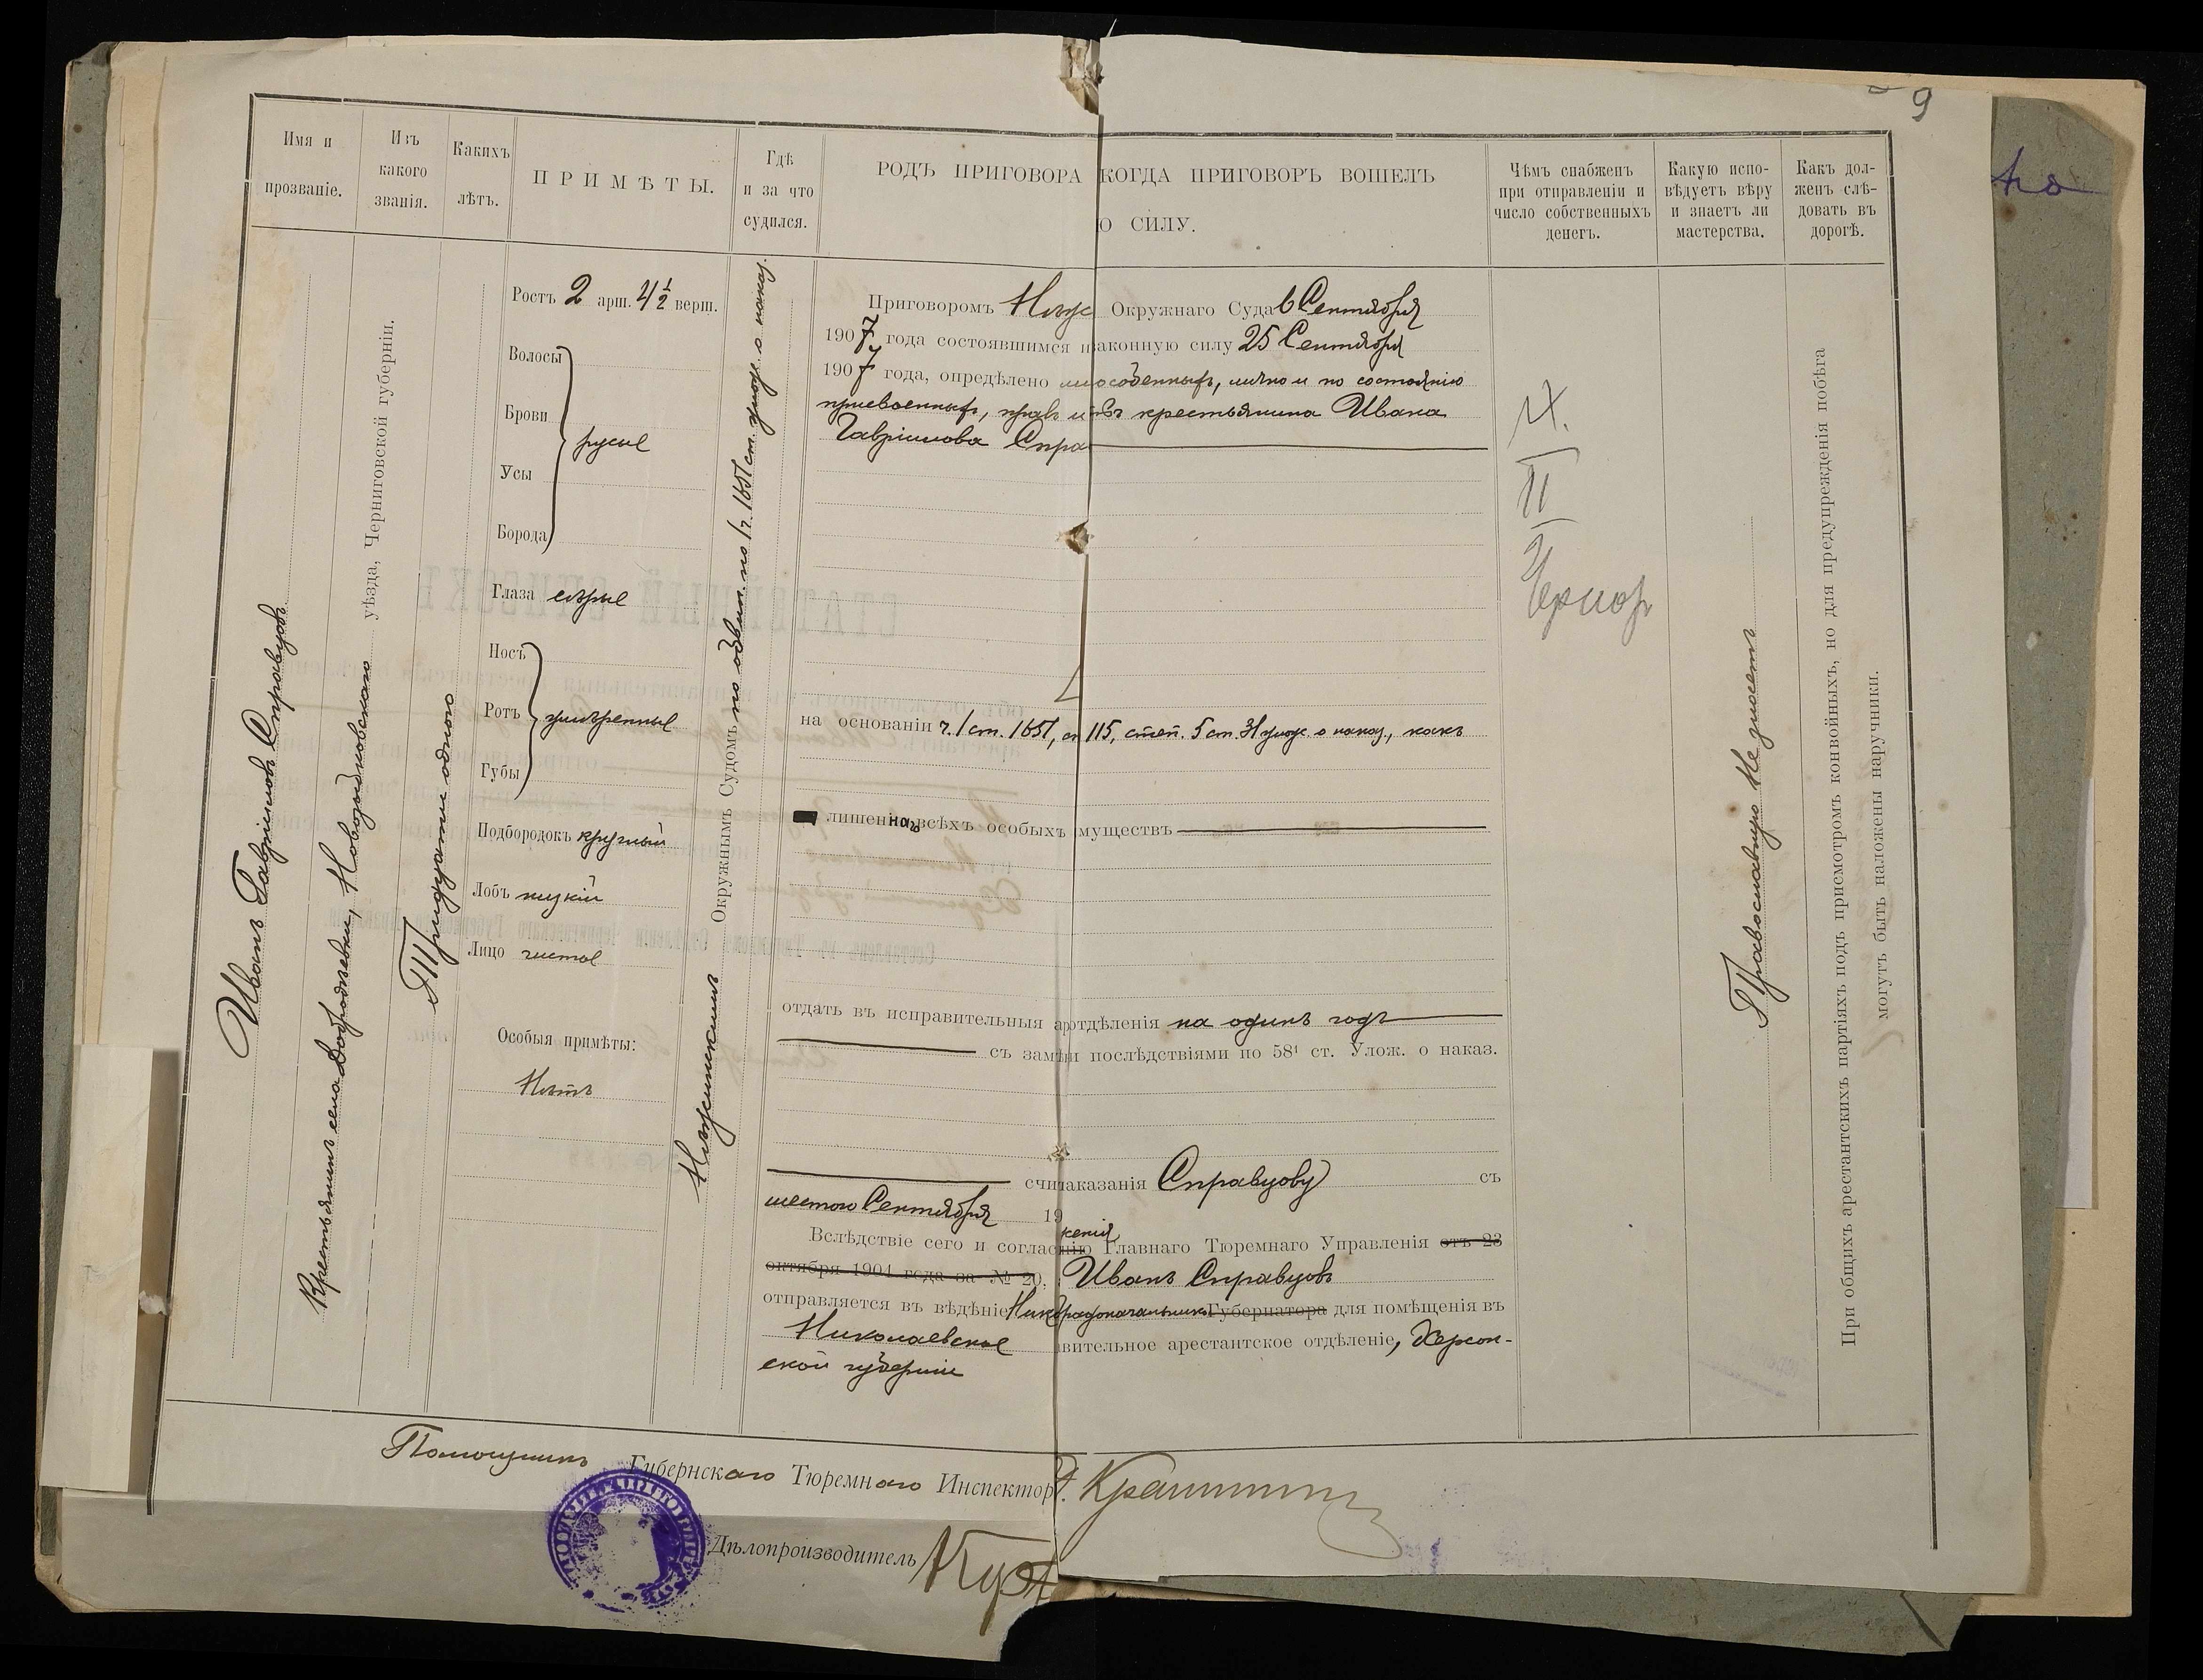 9
Имя и
прозваніе.
Изъ
какого
званія.
Какихъ
лѣтъ.
ПРИМѢТЫ.
Гдѣ
и за что
судился.
РОДЪ ПРИГОВОРА КОГДА ПРИГОВОРЪ ВОШЕЛЪ
СИЛУ.
Чѣмъ снабженъ
при отправленіи и
число собственныхъ
денегъ.
Какую испо-
вѣдуетъ вѣру
и знаетъ ли
мастерства.
Какъ дол-
женъ слѣ-
довать въ
дорогѣ.
Иванъ Гавріиловъ Справцовъ
Крестьянинъ села Добродѣевки, Новозыбковскаго уѣзда, Черниговской губерніи.
Тридцати одного
Ростъ 2 арш. 4 ½ верш.
Волосы
Брови
русые
Усы
Борода
Глаза сѣрые
Носъ
Ротъ умѣренные
Губы
Подбородокъ круглый
Лобъ низкій
Лицо чистое
Особыя примѣты:
Нѣтъ
Нѣжинскимъ Окружнымъ Судомъ по обвин. по 1 ч. 1651 ст. улож. о наказ.
Приговоромъ Нѣж Окружнаго Суда 6 Сентября
1907 года состоявшимся аконную силу 25 Сентября
1907 года, опредѣлено особенныхъ, лично и по состоянію
присвоенныхъ, правъ и крестьянина Ивана
Гавріилова Спра
на основаніи ч. 1 ст. 1651, 115, степ. 5 ст. 31 улож. о наказ., какъ
лишен на всѣхъ особыхъ муществъ
отдать въ исправительныя а отдѣленія на одинъ годъ
съ зам и послѣдствіями по 58¹ ст. Улож. о наказ.
счи аказанія Справцову съ
шестого Сентября 19
Вслѣдствіе сего и соглас Главнаго Тюремнаго Управленія отъ 23
октября 1904 года за № 20. Иванъ Справцовъ
отправляется въ вѣдѣніе Ник градоначальника Губернатора для помѣщенія въ
Николаевское вительное арестантское отдѣленіе, Херсон-
ской губерніи
Православную Не знаетъ
При общихъ арестантскихъ партіяхъ подъ присмотромъ конвойныхъ, но для предупрежденія побѣга
могутъ быть наложены наручники.
Помощникъ Губернскаго Тюремнаго Инспектор
Дѣлопроизводитель